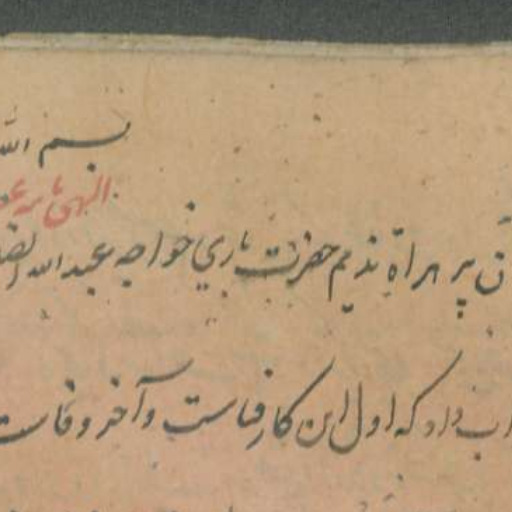 بسم الله
الهی نامه
آن پیر هراة ندیم حضرت باری خواجه عبدالله انصا
اب داد که اول این کار فناست و آخر وفاست